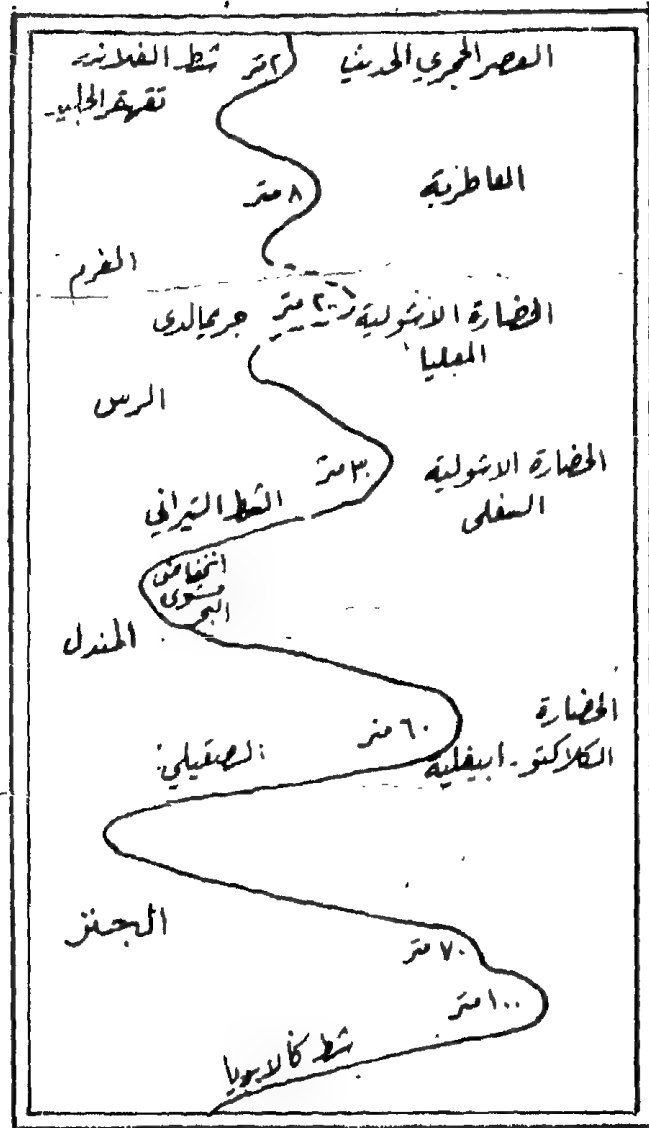 العصر الحجري الحديث ٢ متر شط الفلاندر
تقهقر الجليد
العاطرية ٨ متر
الفرم
الحضارة الاشولية متر جريمالدى
العليا
الرس
الحضارة الاشولية ٣٠ متر
السفلى
الشط التيراني
انخفاض
مستوى
البحر
المندل
الحضارة ٦٠ متر
الكلاكتو - ابيفلية الصقيلي
الجنز
٧٠ متر
١٠٠ متر
شط كالابريا